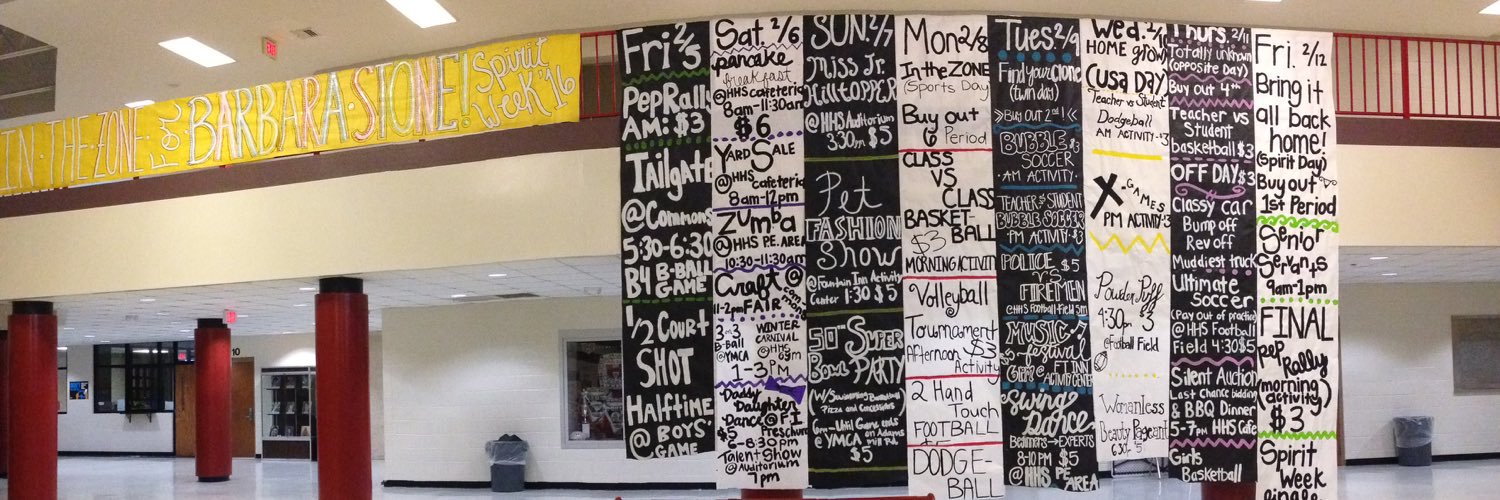 IN·THE·ZONE· For BARBARA·STONE! Spirit
Week '16
EXIT
EXIT
10
Fri 2/5
Pep Rally
AM: $3
Tailgate
@Commons
5:30-6:30
B4 B-BALL
GAME
1/2 Court
SHOT
HalfTime
@ BOYS'
GAME
Sat. 2/6
pancake
breakfast
@HHS cafeteria
8am-11:30am
$6
YARD SALE
@HHS
cafeteria
8am-12pm
Zumba
@HHS P.E. AREA
10:30-11:30am
Craft @
11-2pm FAIR
3 on 3
B-Ball
@YMCA
WINTER
CARNIVAL
@HHS
gym
1-3PM
Daddy
Daughter
Dance @ FI
$5 Preschool
6-8:30pm
Talent Show
@Auditorium
7pm
SUN. 2/7
Miss Jr.
HilltOPPER
@HHS Auditorium
3:30pm $5
Pet
FASHION
Show
@Fountain Inn Activity
Center 1:30 $5
50th Super
Bowl PARTY
(W/Swimming Basketball
Pizza and Concessions
6pm-Until Game ends
@YMCA on Adams
Mill Rd
$5
Mon 2/8
In the ZONE
(Sports Day)
Buy out
6 Period
CLASS
VS
CLASS
BASKET-
$3 BALL
MORNING ACTIVITY
Volleyball
Tournament
Afternoon $3
Activity
2 Hand
Touch
FOOTBALL
DODGE-
BALL
Tues. 2/9
Find your clone
(twin day)
>>Buy out 2nd!<<
BUBBLE
SOCCER
·AM ACTIVITY·
TEACHER VS STUDENT
BUBBLE SOCCER
·PM ACTIVITY·$3
POLICE $5
VS
FIREMEN
@HHS Football Field 5pm
MUSIC
festival
@ FT INN
ACTIVITY CENTER
Swing
Dance
Beginners→EXPERTS
8-10 PM $5
@HHS PE
AREA
Wed. 2/1
HOME grown
(USA DAY)
Teacher vs Student
Dodgeball
AM ACTIVITY·$3
X-GAMES
PM ACTIVITY·$3
Powder Puff
4:30pm $3
@Football Field
Womanless
Beauty Pageant
6:30 - $5
Thurs. 2/11
Totally unknown
(opposite Day)
Buy out 4th
Teacher vs
Student
basketball $3
OFF DAY $3
Classy car
Bump off
Rev off
Muddiest truck
Ultimate
Soccer
(Pay out of practice)
@HHS Football
Field 4:30 $5
Silent Auction
Last Chance bidding
& BBQ Dinner
5-7pm HHS Cafe
Girls
Basketball
Fri. 2/12
Bring it
all back
home!
(Spirit Day)
Buy out
1st Period
Senior
Servants
9am-1pm
FINAL
pep
Rally
(morning
activity)
$3
Spirit
Week